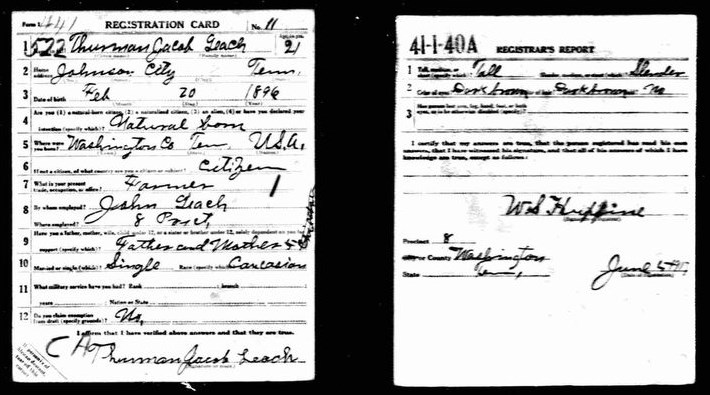 Form 1 441 REGISTRATION CARD No. 11
1 522 Thurman Jacob Leach Age, in yrs. 21
(Given name) (Family name)
2 Home address Johnson City Tenn.
3 Date of birth Feb 20 1896
(Month) (Day) (Year)
4 Are you (1) a natural-born citizen, (2) a naturalized citizen, (3) an alien, (4) or have you declared your
intention (specify which)? Natural born
5 Where were you born? Washington Co Ten, U.S.A.
6 If not a citizen, of what country are you a citizen or subject? Citizen
7 What is your present trade, occupation, or office? Farmer 1
8 By whom employed? John Leach
Where employed? 8 Prect,
9 Have you a father, mother, wife, child under 12, or a sister or brother under 12, solely dependent on you for
support (specify which)? Father and Mother &
10 Married or single (which)? Single Race (specify which)? Caucasian
11 What military service have you had? Rank branch
years Nation or State
12 Do you claim exemption from draft (specify grounds)? No,
I affirm that I have verified above answers and that they are true.
Thurman Jacob Leach
(Signature or mark)
If person is of African descent, tear off this corner
41-1-40A REGISTRAR'S REPORT
1 Tall, medium, or short (specify which)? Tall Slender, medium, or stout (which)? Slender
2 Color of eyes Dark brown of hair Dark brown No
3 Has person lost arm, leg, hand, foot, or both
eyes, or is he otherwise disabled (specify)?
I certify that my answers are true, that the person registered has read his own
answers, that I have witnessed his signature, and that all of his answers of which I have
knowledge are true, except as follows:
W.S. Huffine
Precinct 8
City or County Washington
State Ten, June 5